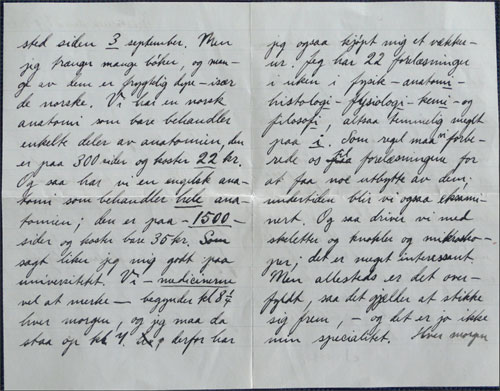 sted siden 3 september. Men
jeg trænger mange bøker, og man-
ge av dem er frygtelig dyre - især
de norske. Vi har en norsk
anatomi som bare behandler
enkelte deler av anatomien, den
er paa 300 sider og koster 22 kr.
Og saa har vi en engelsk ana-
tomi som behandler hele ana-
tomien; den er paa - 1500 -
sider og koster bare 35 kr. Som
sagt liker jeg mig godt paa
universitetet. Vi - medicinerne
vel at merke - begynder kl 8 1/4
hver morgen, og jeg maa da
staa op kl 7. derfor har
jeg ogsaa kjøpt mig et vække-
ur. Jeg har 22 forelæsninger
i uken i fysik - anatomi -
histologi - fysiologi - kemi - og
filosofi altsaa temmelig meget
paa i. Som regel maa vi forbe-
rede os forelæsningene for
at faa noe utbytte av dem;
undertiden blir vi ogsaa eksami-
nert. Og saa driver vi med
skeletter og knokler og mikrosko-
per; det er meget interessant.
Men allesteds er det over-
fyldt, saa det gjelder at stikke
sig frem, - og det er jo ikke
min specialitet. Hver morgen